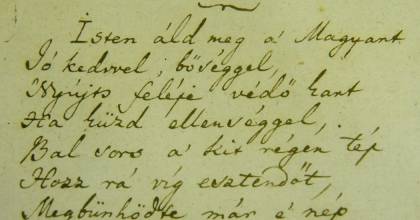 Isten áld meg a' Magyart
Jó kedvvel, bőséggel,
Nyújts feléje védő kart
Ha küzd ellenséggel,
Bal sors a' kit régen tép
Hozz rá víg esztendőt,
Megbünhödte már e' nép